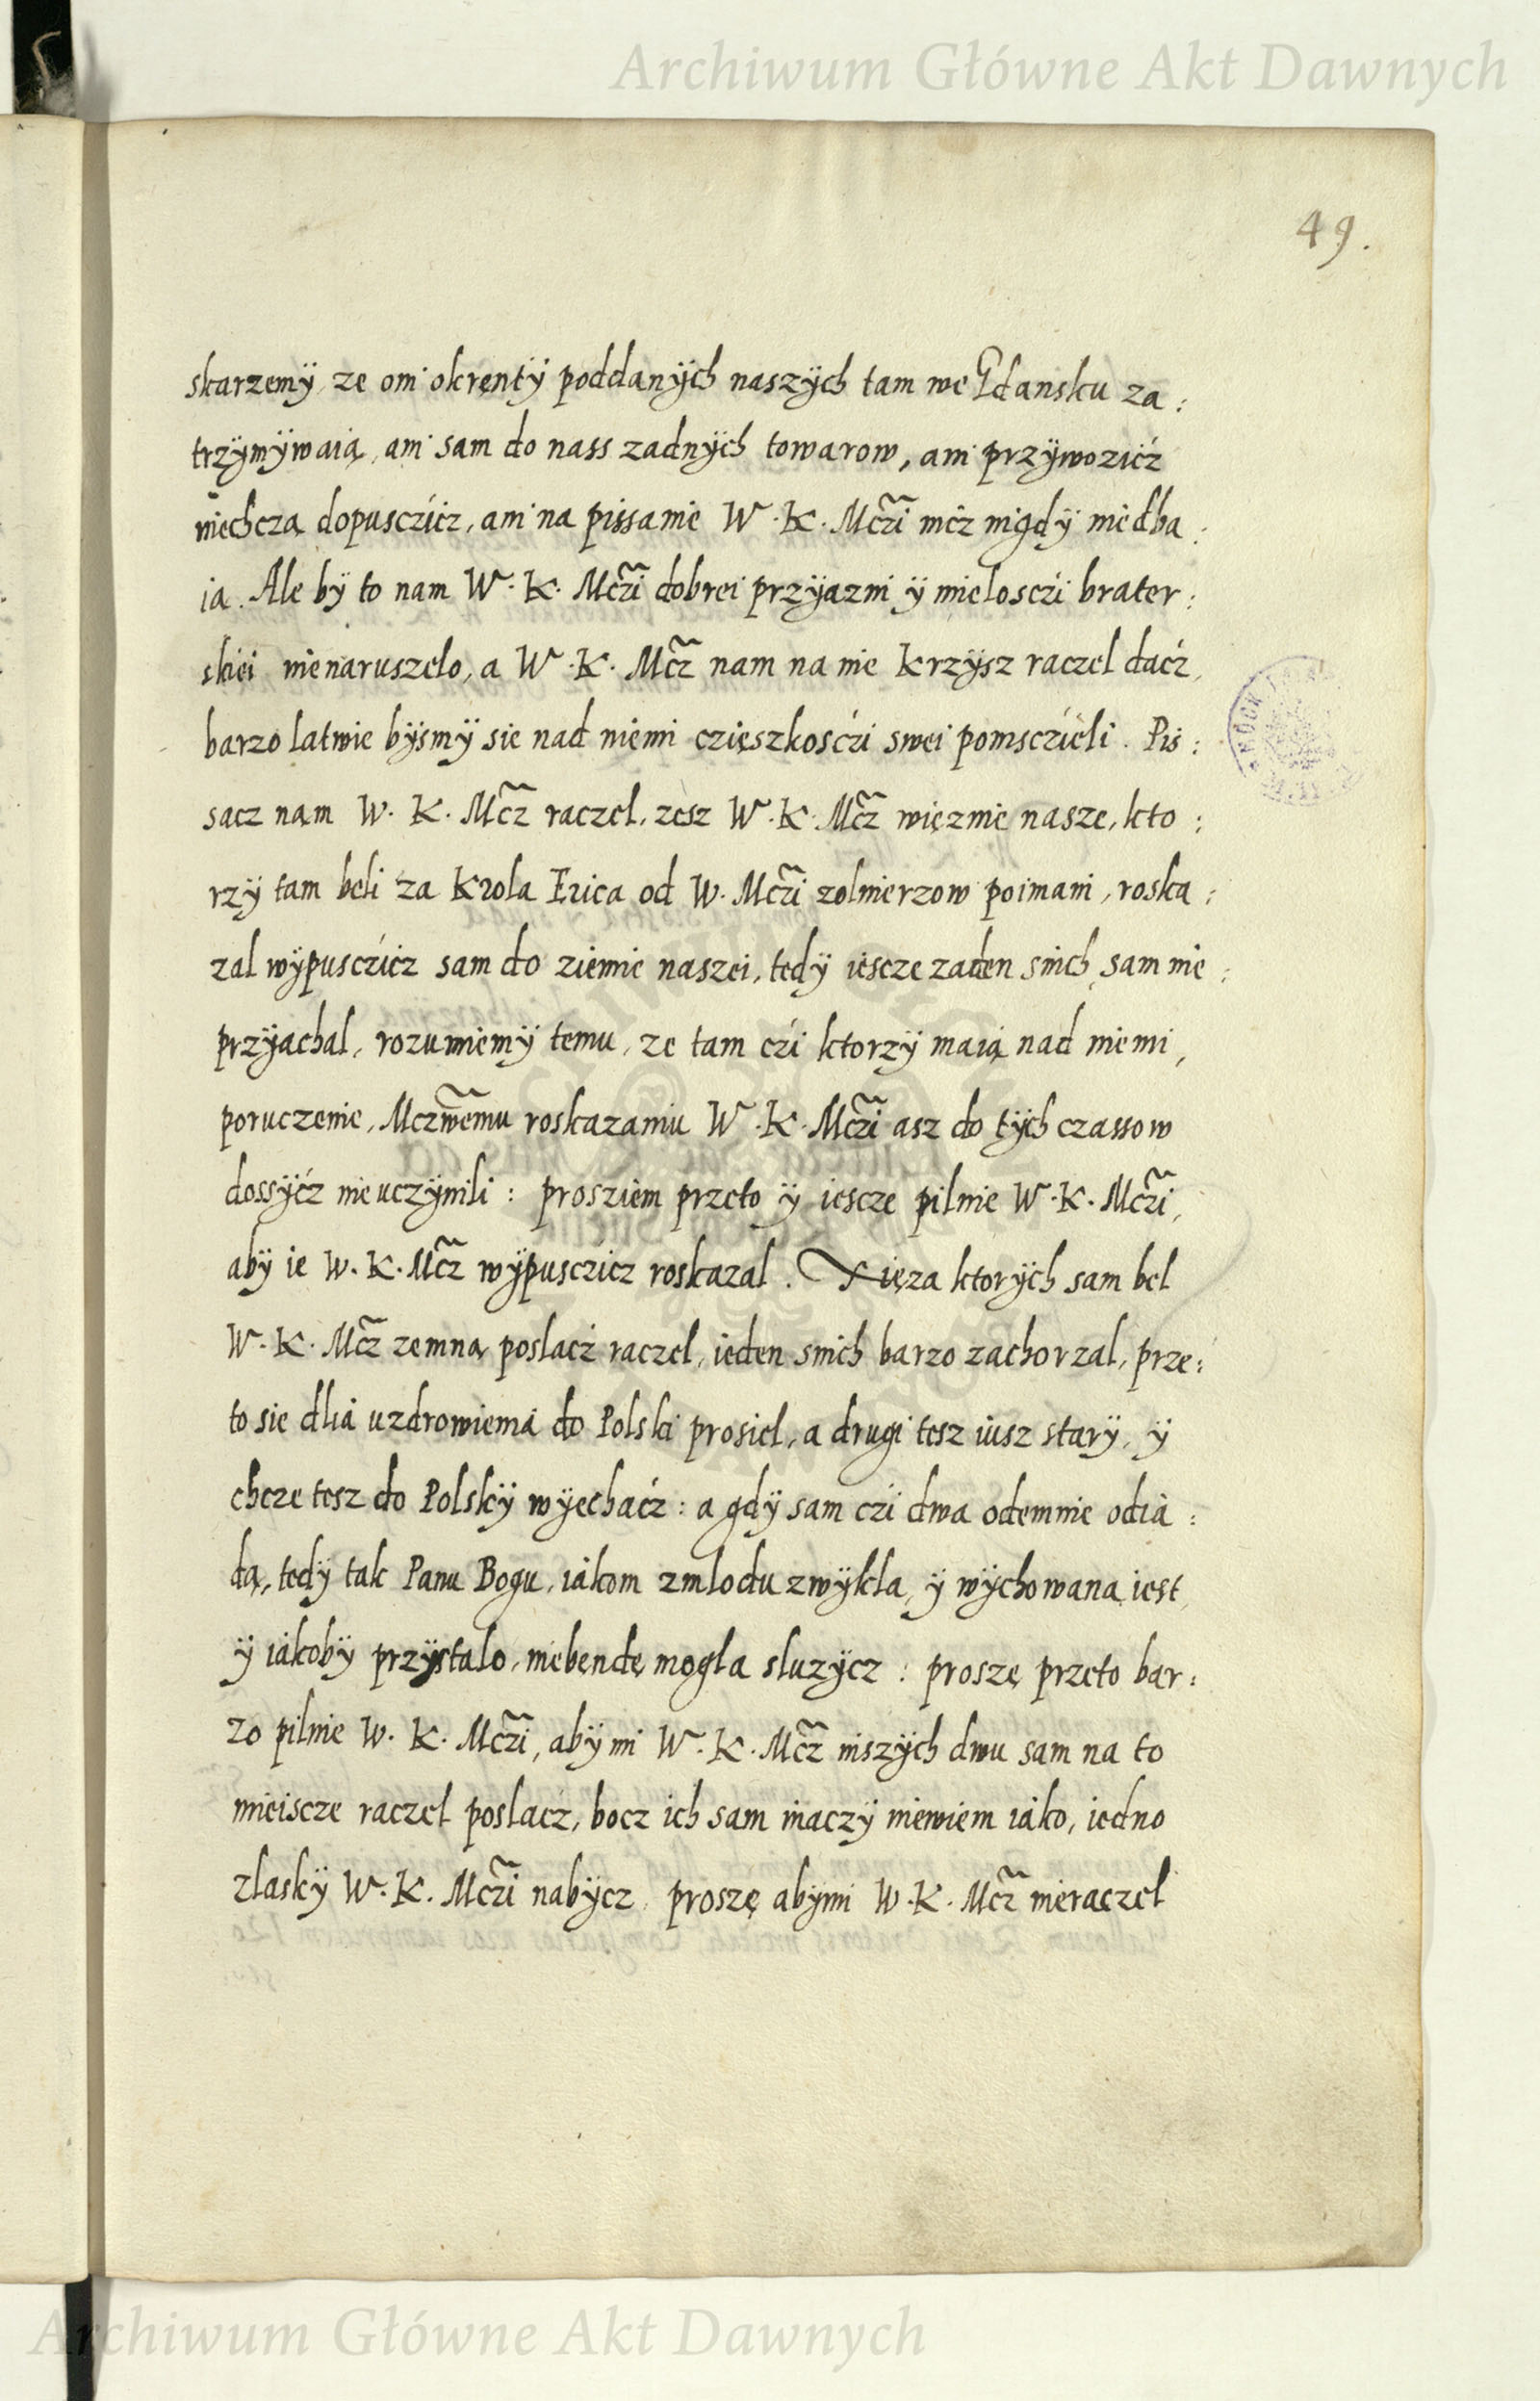 Archiwum Główne Akt Dawnych
49.
skarzemÿ, ze oni okrentÿ poddanÿch naszÿch tam we Gdansku za:
trzÿmÿwaią, ani sam do nass zadnÿch towarow, ani przÿwozićz
niechczą dopusczićz, ani na pissanie W. K. Mczi nicz nigdÿ niedba:
ia. Ale bÿ to nam W. K. Mczi dobrei przÿazni ÿ mielosczi brater:
skiei nienaruszelo, a W. K. Mcz nam na nie krzÿsz raczel dacz,
barzo latwie bÿsmÿ sie nad niemi czięszkosczi swei pomsczieli. Pis:
sacz nam W. K. Mcz raczel, zesz W. K. Mcz więznie nasze, kto:
rzÿ tam beli za Krola Erica od W. Mczi zolnierzow poimani, roska:
zal wÿpusczicz sam do ziemie naszei, tedÿ iescze zaden snich sam nie:
przÿachal, rozumiemÿ temu, ze tam czi ktorzÿ maią nad niemi,
poruczenie, Mczwemu roskazaniu W. K. Mczi asz do tÿch czassow
dossÿcz nieuczÿnili: prosziem przeto ÿ iescze pilnie W. K. Mczi,
abÿ ie W. K. Mcz wÿpusczicz roskazal. Xięza ktorÿch sam bel
W. K. Mcz zemną poslacz raczel, ieden snich barzo zachorzal, prze:
to sie dlia uzdrowienia do Polski prosiel, a drugi tesz iusz starÿ, ÿ
chcze tesz do Polskÿ wÿechacz: a gdÿ sam czi dwa odemnie odia:
dą, tedÿ tak Panu Bogu, iakom zmlodu zwÿkla, ÿ wÿchowana iest,
ÿ iakobÿ przÿstalo, niebendę mogla sluzÿcz: proszę przeto bar:
zo pilnie W. K. Mczi, abÿ mi W. K. Mcz inszÿch dwu sam na to
mieiscze raczel poslacz, bocz ich sam inaczÿ niewiem iako, iedno
zlaskÿ W. K. Mczi nabÿcz, proszę abÿmi W. K. Mcz nieraczel
Archiwum Główne Akt Dawnych